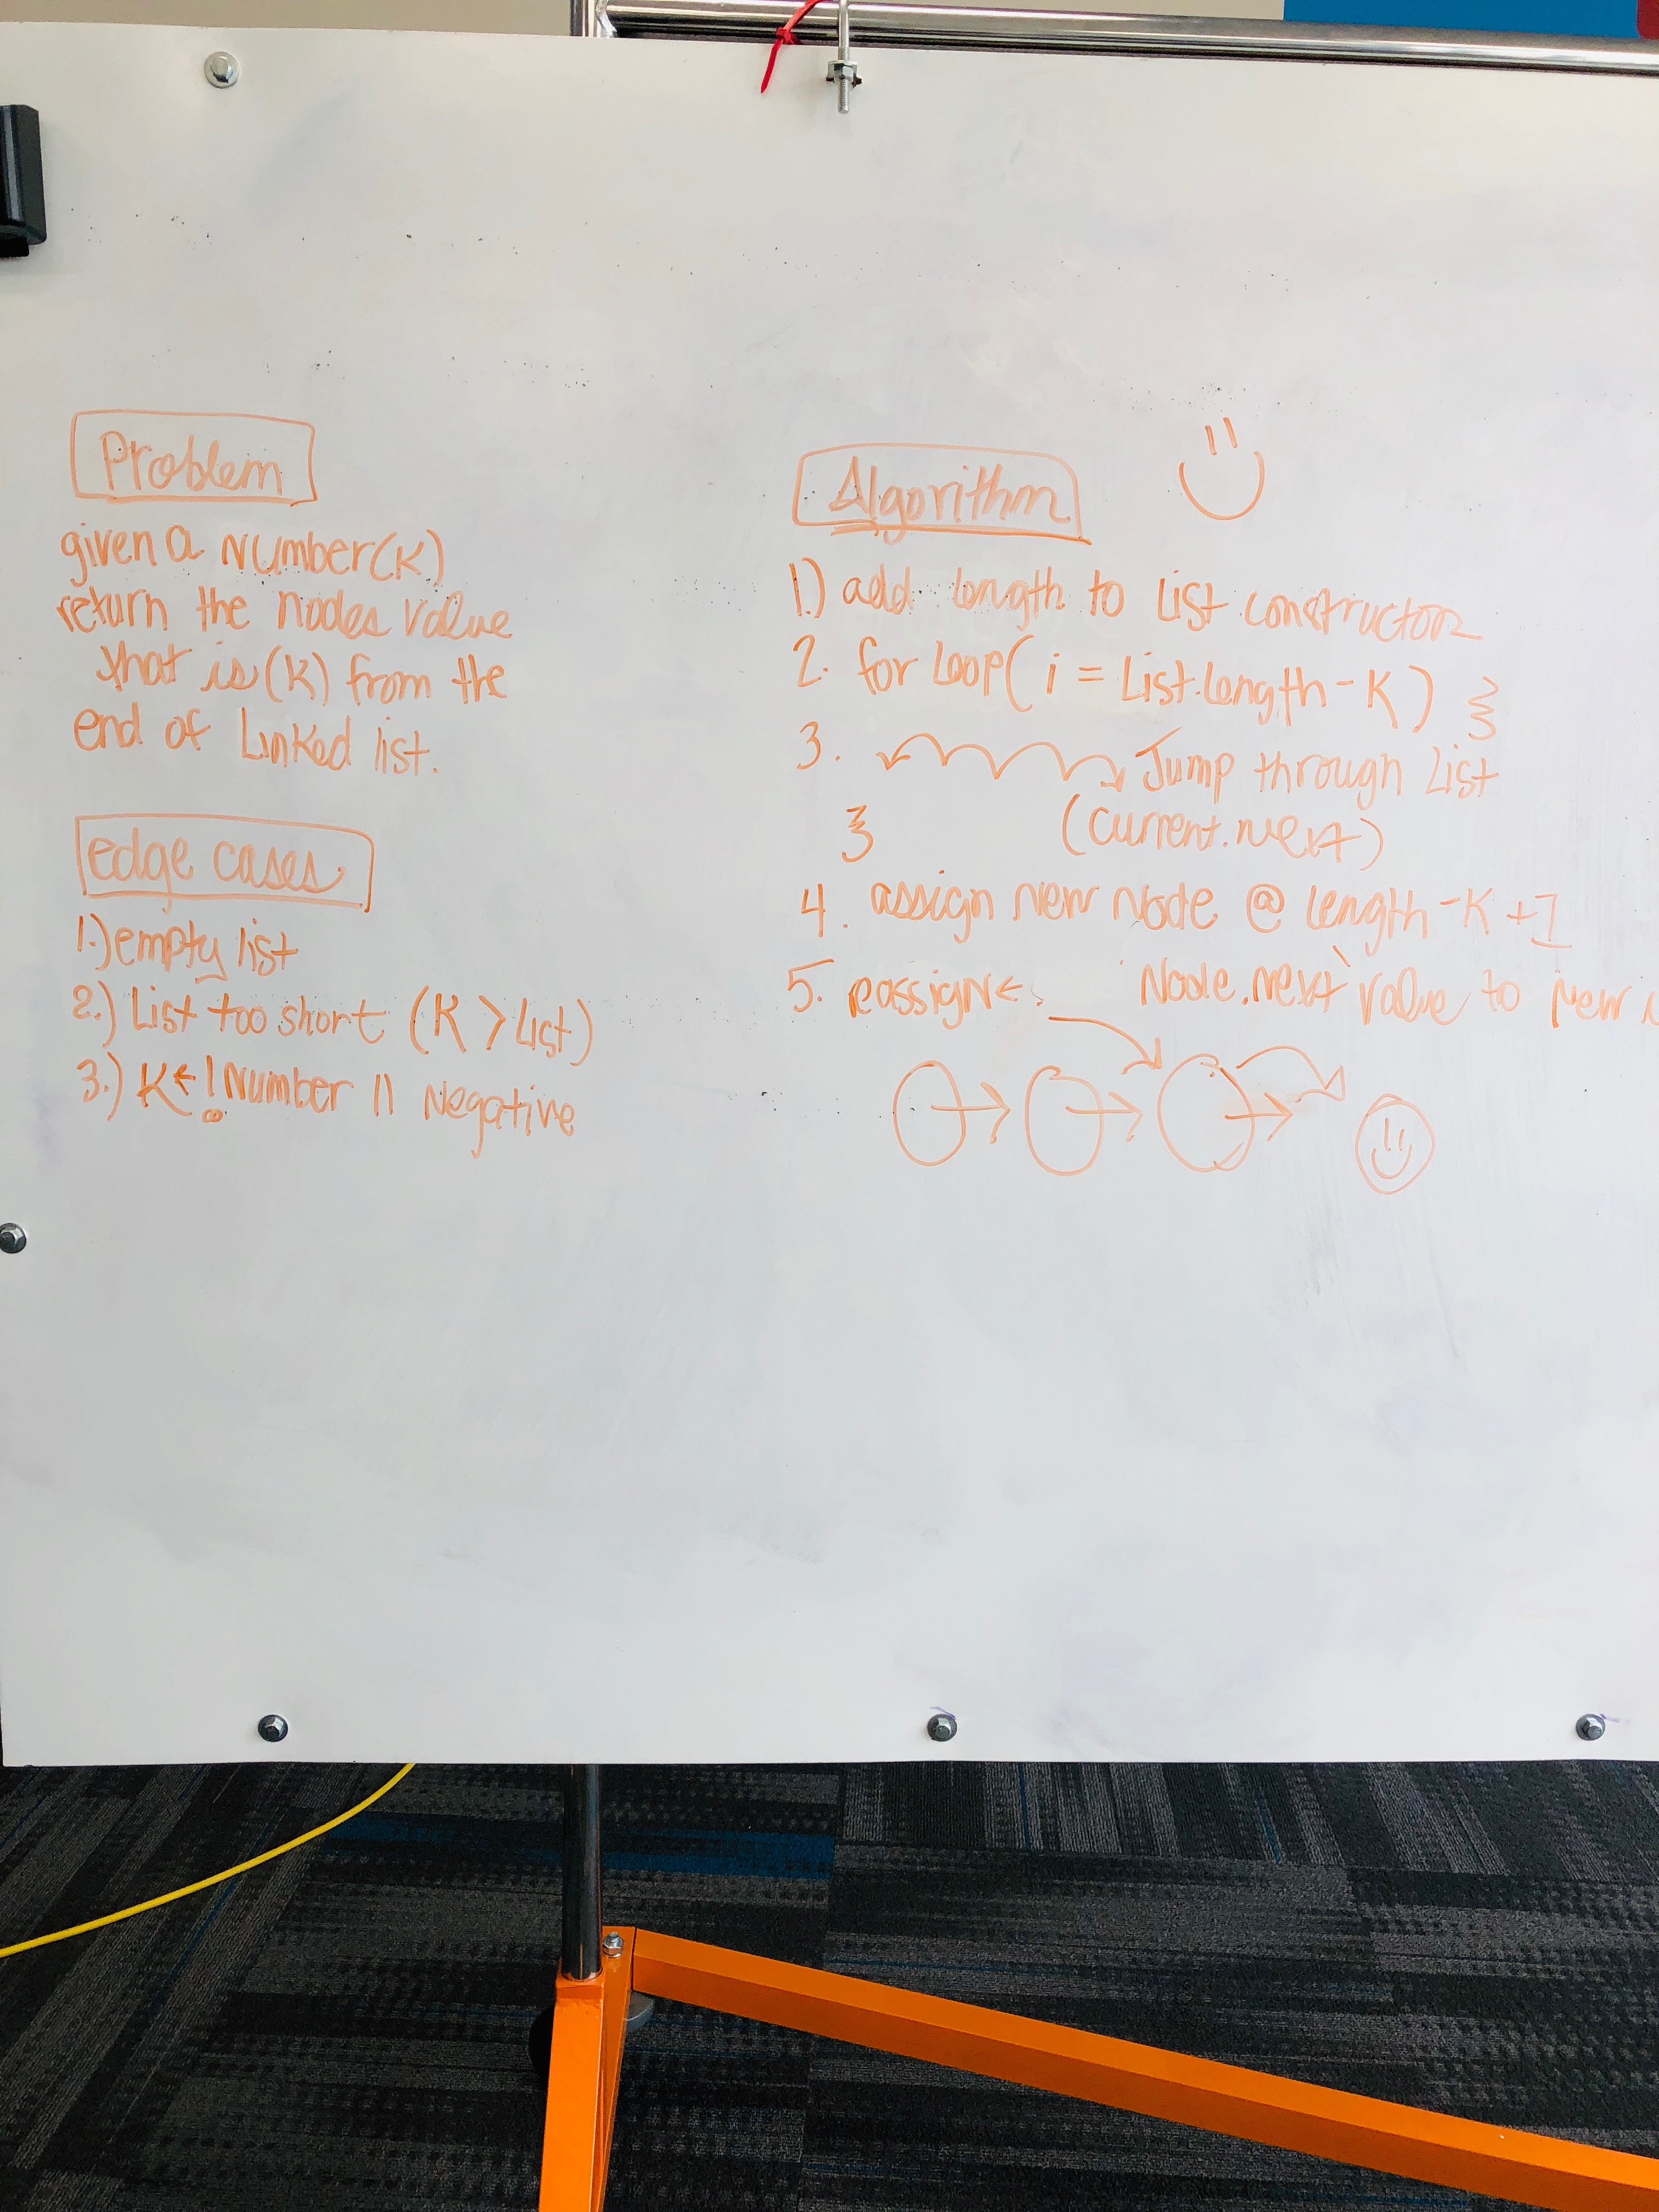 Problem
given a Number(K)
return the nodes value
that is (K) from the
end of Linked list.
edge cases
1.) empty list
2.) List too short (K > List)
3.) K ← ! Number || Negative
Algorithm
1.) add length to List constructor
2. for Loop( i = List.length - K ) {
3. Jump through List
} (current.next)
4. assign new Node @ length - K + 1
5. reassign ← Node.next value to new